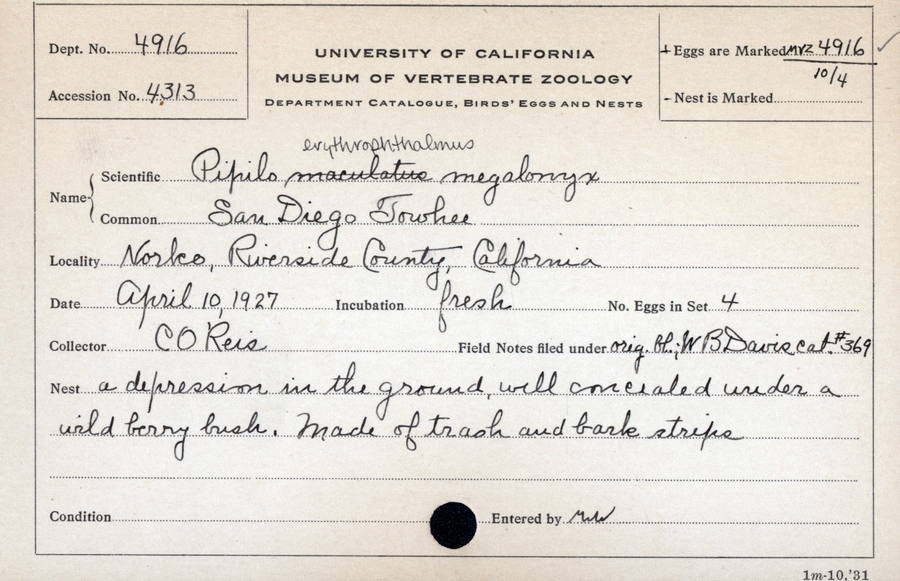 Dept. No. 4916
Accession No. 4313
UNIVERSITY OF CALIFORNIA
MUSEUM OF VERTEBRATE ZOOLOGY
DEPARTMENT CATALOGUE, BIRDS' EGGS AND NESTS
+ Eggs are Marked MVZ 4916 ✓
10/4
- Nest is Marked
erythrophthalmus
Name { Scientific Pipilo maculatus megalonyx
Common San Diego Towhee
Locality Norko, Riverside County, California
Date April 10, 1927 Incubation fresh No. Eggs in Set 4
Collector C O Reis Field Notes filed under orig. bl.; W B Davis cat. #369
Nest a depression in the ground, will concealed under a
wild berry bush. Made of trash and bark strips
Condition Entered by
1m-10,'31